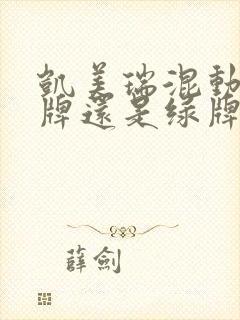 凯美瑞混動
牌還是绿牌
薛劍